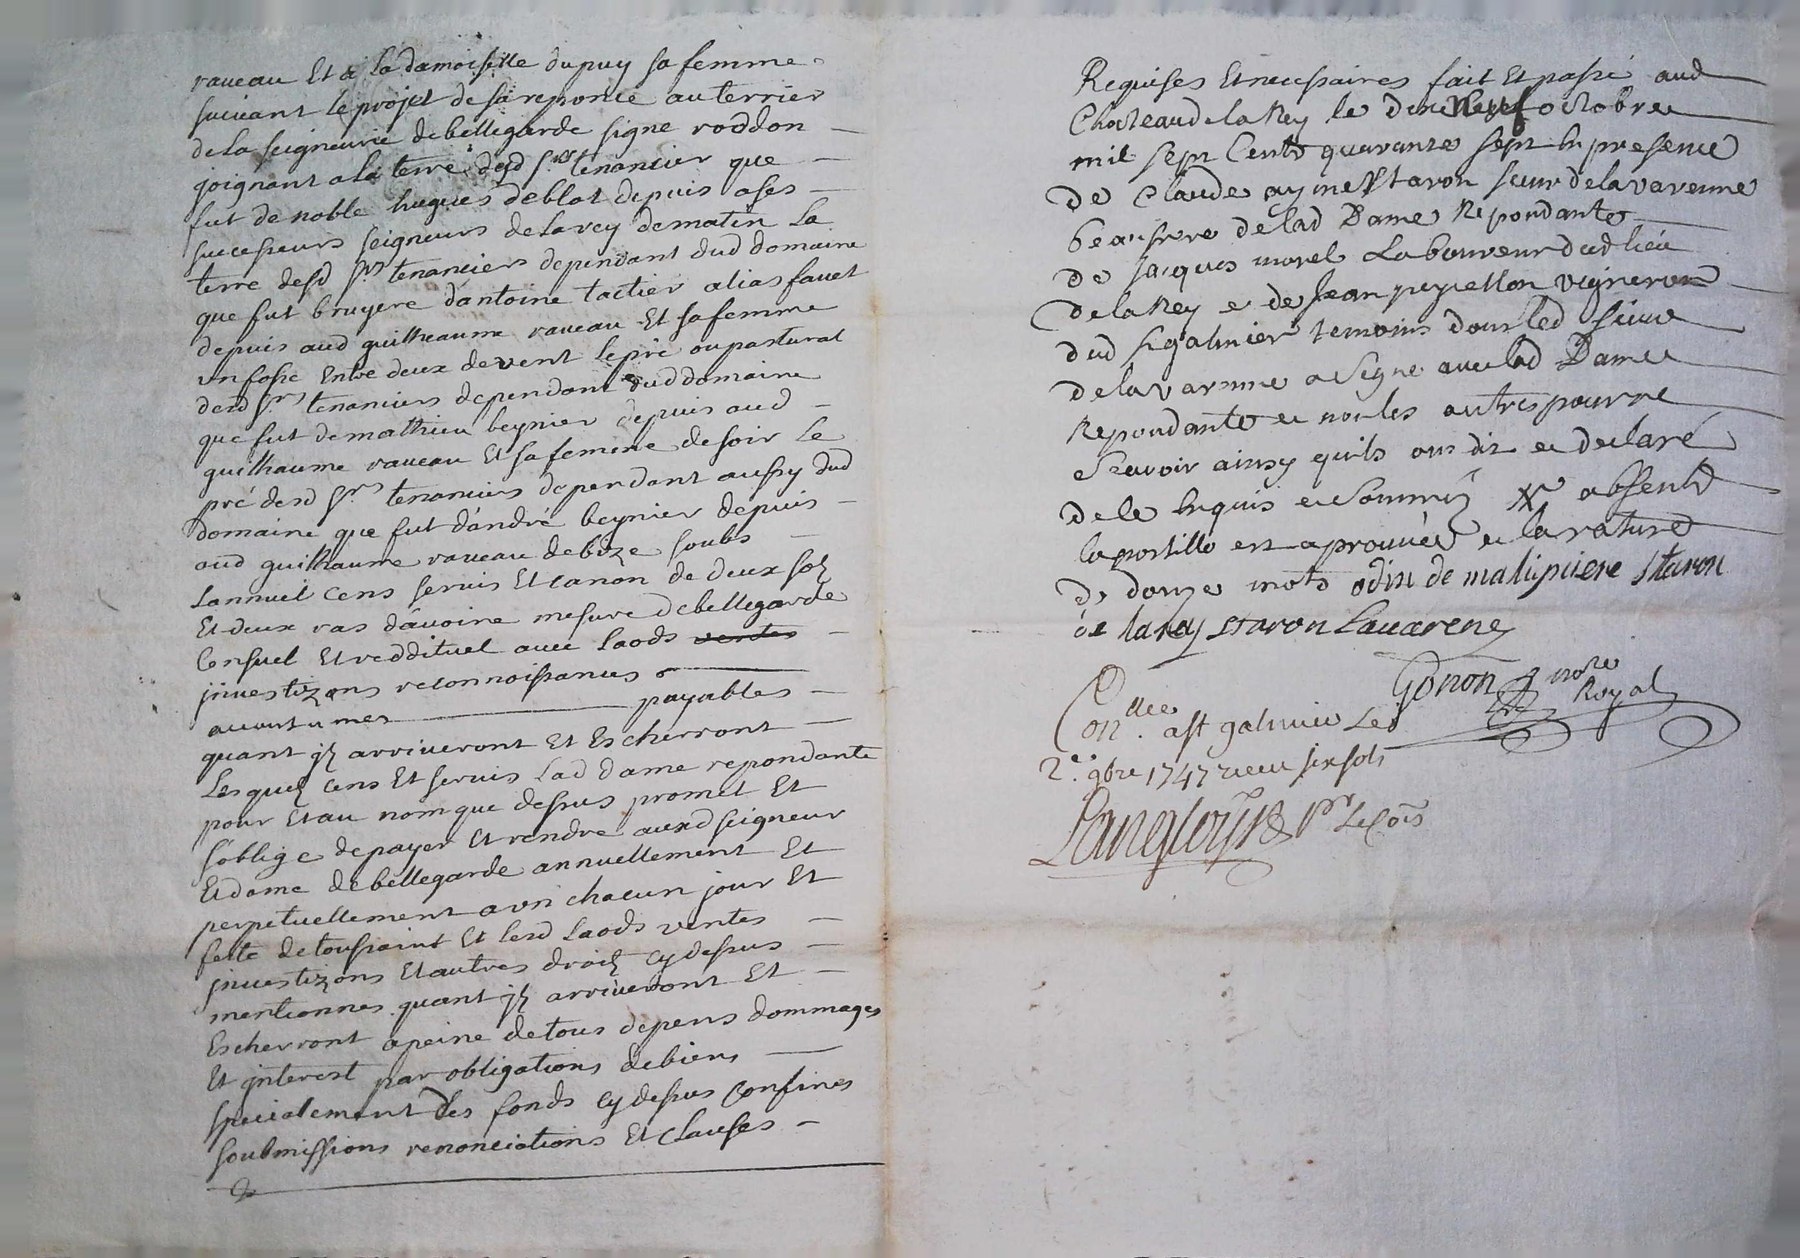 raveau Et a La damoiselle dupuy sa femme
suivant le projet de sa reponce au terrier
de la seigneurie de bellegarde signe roddon
joignant a la terre desd srs tenancier que
fut de noble hugues de blot depuis a ses
sucesseurs seigneurs de la rey de matin La
terre desd srs tenanciers dependant dud domaine
que fut bruyere d'antoine tactier alias favet
depuis aud guilheaume raveau Et sa femme
un fossé Entre deux de vent le pré ou pasturat
desd srs tenanciers dependant dud domaine
que fut de mathieu beynier depuis aud
guilhaume raveau Et sa femme de soir Le
pré desd srs tenanciers dependant aussy dud
domaine que fut d'andré beynier depuis
aud guilhaume raveau de bize soubs
Lannuel cens servis Et canon de deux solz
Et deux ras d'avoine mesure de bellegarde
Censuel Et reddituel avec Laods ventes
jnvestizons reconnoissances
acoutumes payables
quant jlz arriveront Et Escherront
Lesquelz cens Et servis Lad dame repondante
pour Et au nom que dessus promet Et
s'oblige de payer Et rendre auxd seigneur
Et dame de bellegarde annuellement Et
perpetuellement a un chacun jour Et
feste de toussaint Et lesd Laods ventes
jnvestizons Et autres droitz cy dessus
mentionnes quant jlz arriveront Et
Escherront a peine de tous depens dommages
Et jnterest par obligations de biens
specialement des fonds cy dessus Confines
soubmissions renonciations Et clauses
Requises Et necessaires fait Et passé aud
Chateau de la Rey le dixneuf octobre
mil sept Cents quarante sept En presence
de Claude aymé Staron sieur de la varenne
beaufrere de lad Dame Repondante
de jacques morel Laboureur dud lieu
de la Rey et de Jean peyrellon vigneron
dud st galmier temoins dont led sieur
de la varenne a signé avec lad Dame
Repondante et non les autres pour ne
scavoir ainsy quils ont dit et declaré
de ce Enquis et sommés X absents
la postille est aprouvée et la rature
de douze mots odin de malipiere staron
de la rey staron Lavarene
Gonon nore Royal
Conllée a st galmier Le
2e 9bre 1747 receu six sols
Langlois pr Le Cois